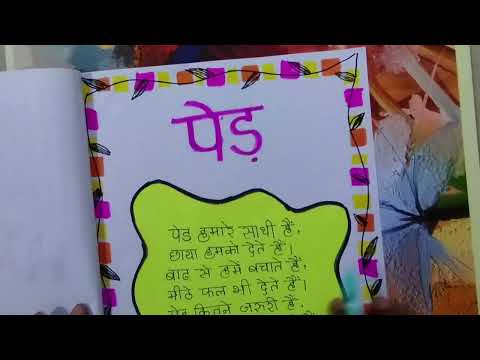 पेड़
पेड हमारे साथी हैं,
छाया हमको देते हैं।
बाढ से हमें बचाते हैं,
मीठे फल भी देते हैं।
पेड कितने जरूरी हैं,